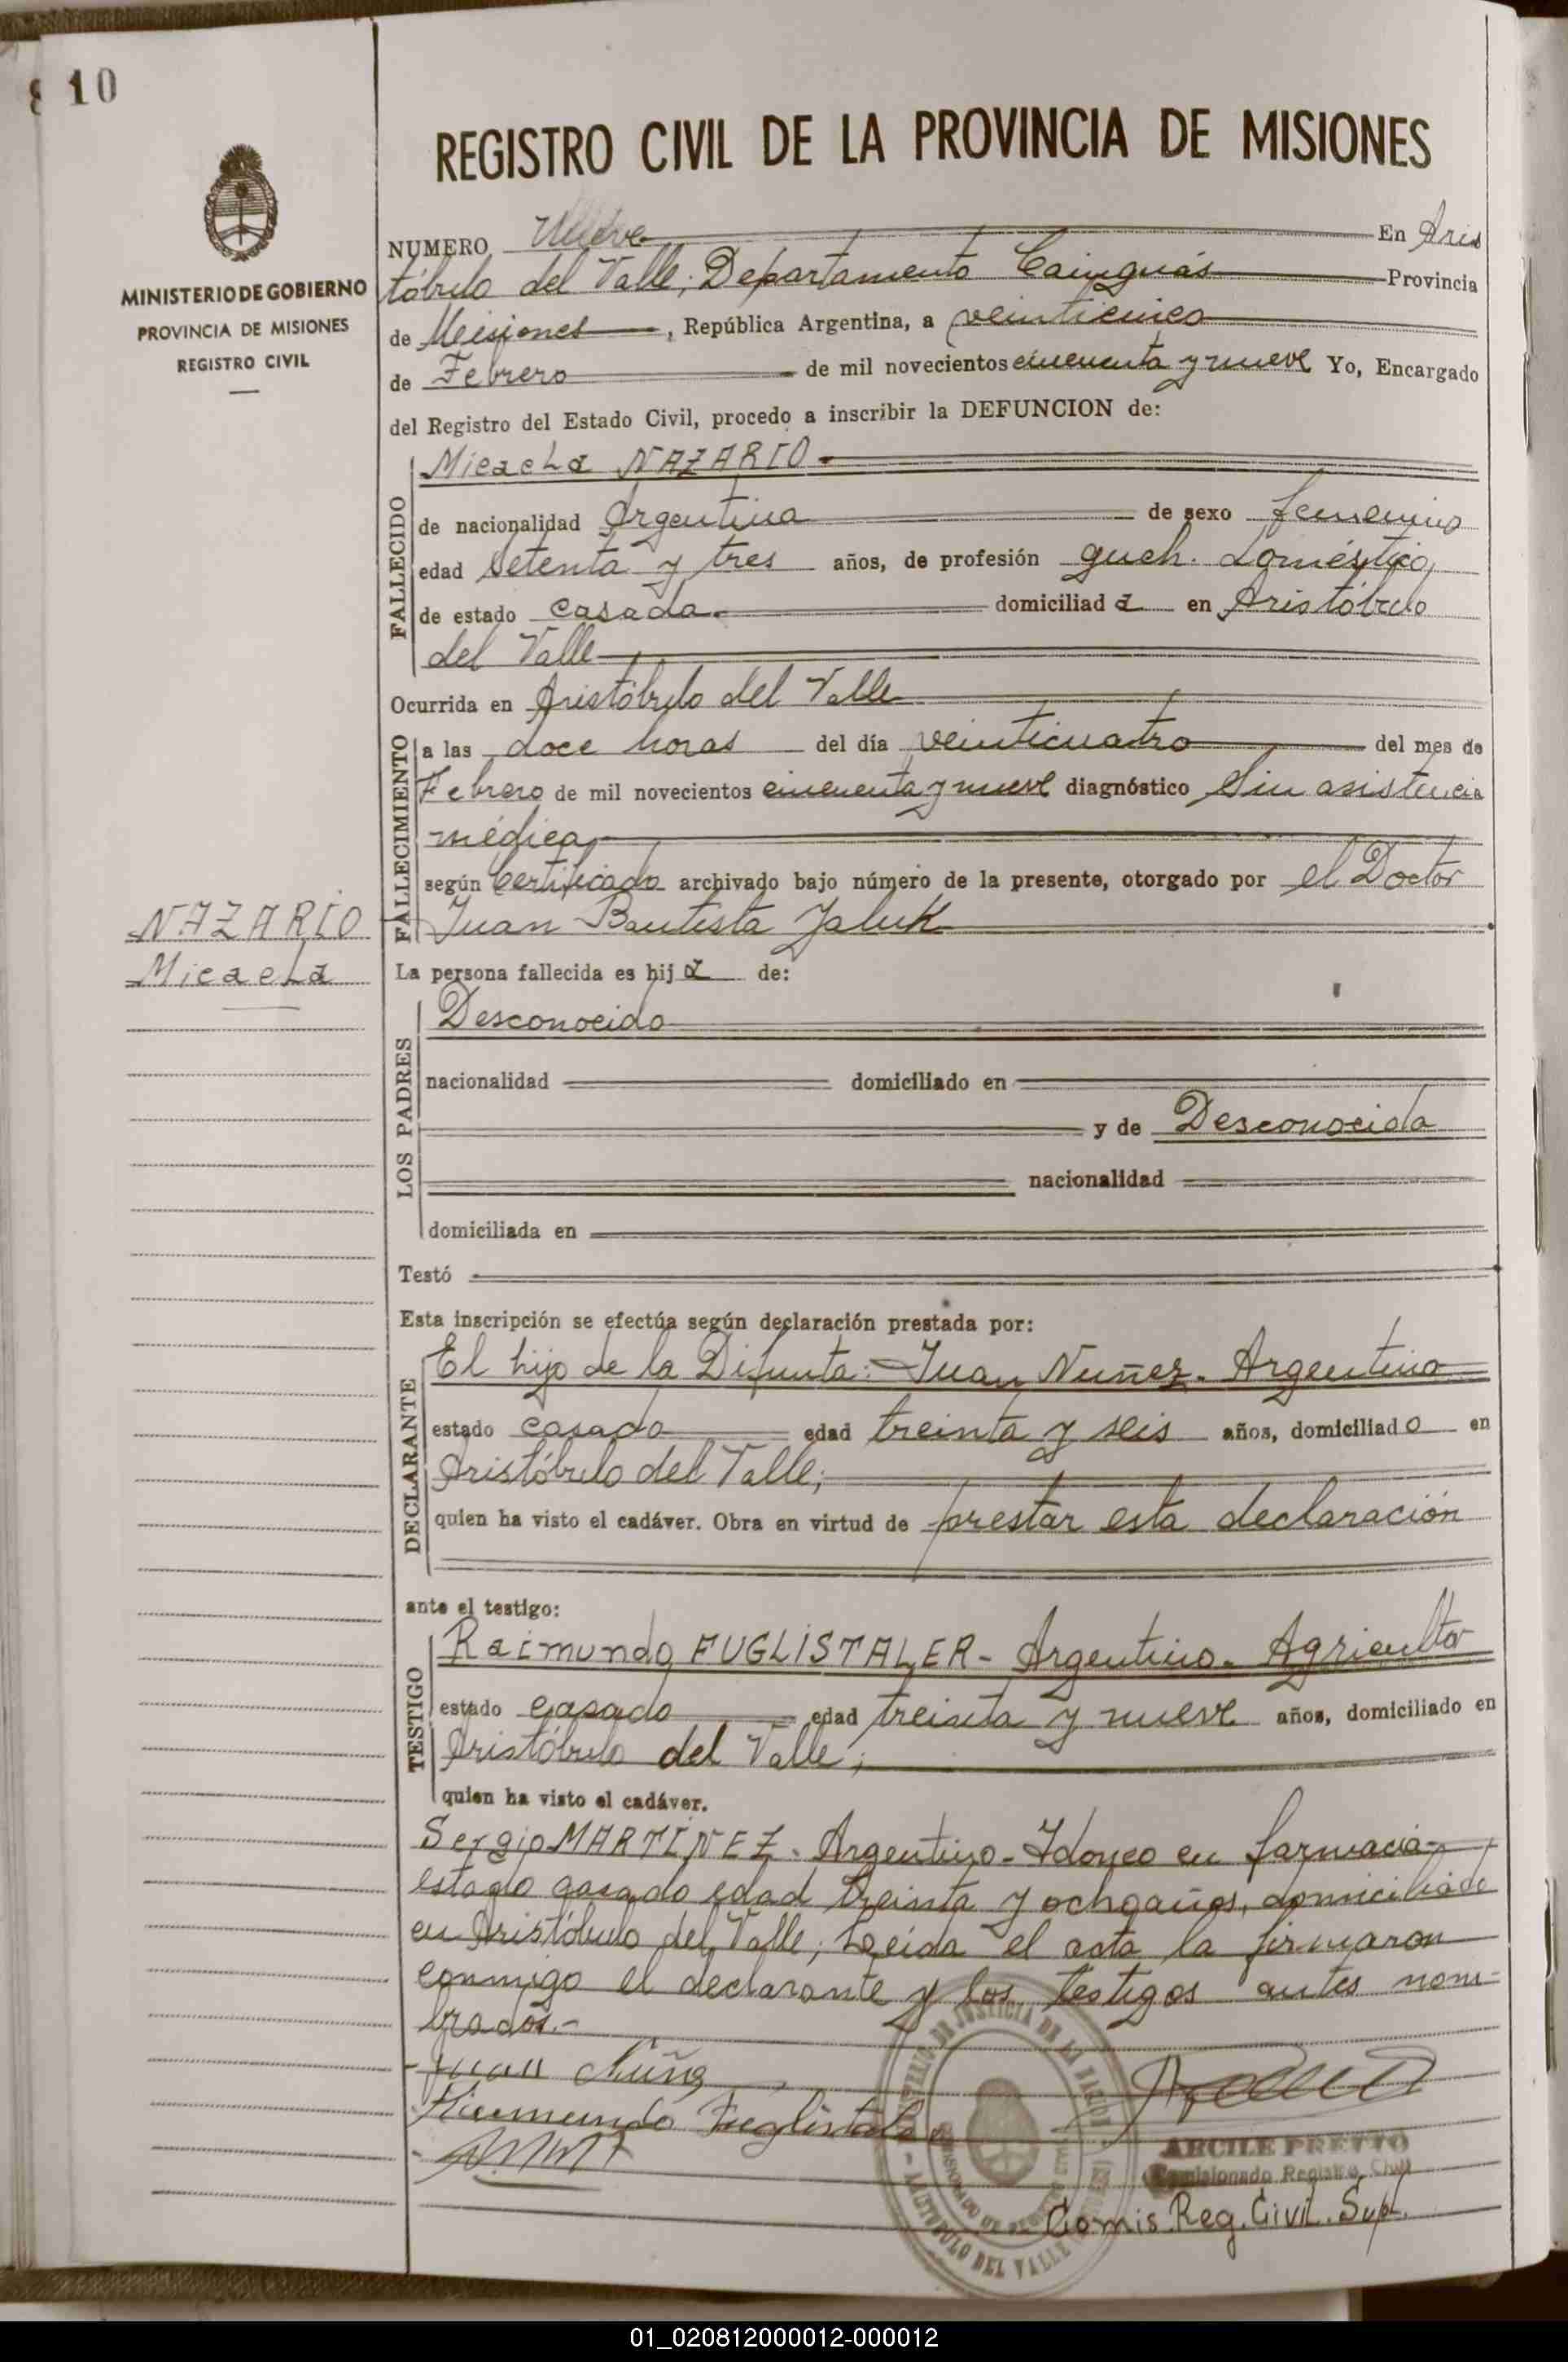 10
REGISTRO CIVIL DE LA PROVINCIA DE MISIONES
MINISTERIO DE GOBIERNO
PROVINCIA DE MISIONES
REGISTRO CIVIL
NUMERO Nueve En Aris
tóbulo del Valle; Departamento Cainguás Provincia
de Misiones, República Argentina, a veinticinco
de Febrero de mil novecientos cincuenta y nueve Yo, Encargado
del Registro del Estado Civil, procedo a inscribir la DEFUNCION de:
FALLECIDO
Micaela NAZARIO.
de nacionalidad Argentina de sexo femenino
edad Setenta y tres años, de profesión queh. doméstico,
de estado casada. domiciliada en Aristóbulo
del Valle
Ocurrida en Aristóbulo del Valle
FALLECIMIENTO
a las doce horas del día veinticuatro del mes de
Febrero de mil novecientos cincuenta y nueve diagnóstico Sin asistencia
médica,
según Certificado archivado bajo número de la presente, otorgado por el Doctor
Juan Bautista Jaluk
NAZARIO
Micaela
La persona fallecida es hija de:
LOS PADRES
Desconocido
nacionalidad domiciliado en
y de Desconocida
nacionalidad
domiciliada en
Testó
Esta inscripción se efectúa según declaración prestada por:
DECLARANTE
El hijo de la Difunta: Juan Nuñez. Argentino
estado casado edad treinta y seis años, domiciliado en
Aristóbulo del Valle;
quien ha visto el cadáver. Obra en virtud de prestar esta declaración
ante el testigo:
TESTIGO
Raimundo FUGLISTALER - Argentino. Agricultor
estado casado edad treinta y nueve años, domiciliado en
Aristóbulo del Valle;
quien ha visto el cadáver.
Sergio MARTÍNEZ. Argentino - Idoneo en farmacia-
estado casado edad treinta y ocho años, domiciliado
en Aristóbulo del Valle; Leída el acta la firmaron
conmigo el declarante y los testigos antes nom-
brados.-
Juan Núñez
Raimundo Fuglistaler
MINISTERIO DE JUSTICIA DE LA
ARISTOBULO DEL VALLE
ARCILE PRETTO
Comisionado Registro Civil
Comis. Reg. Civil. Sup.
01_020812000012-000012